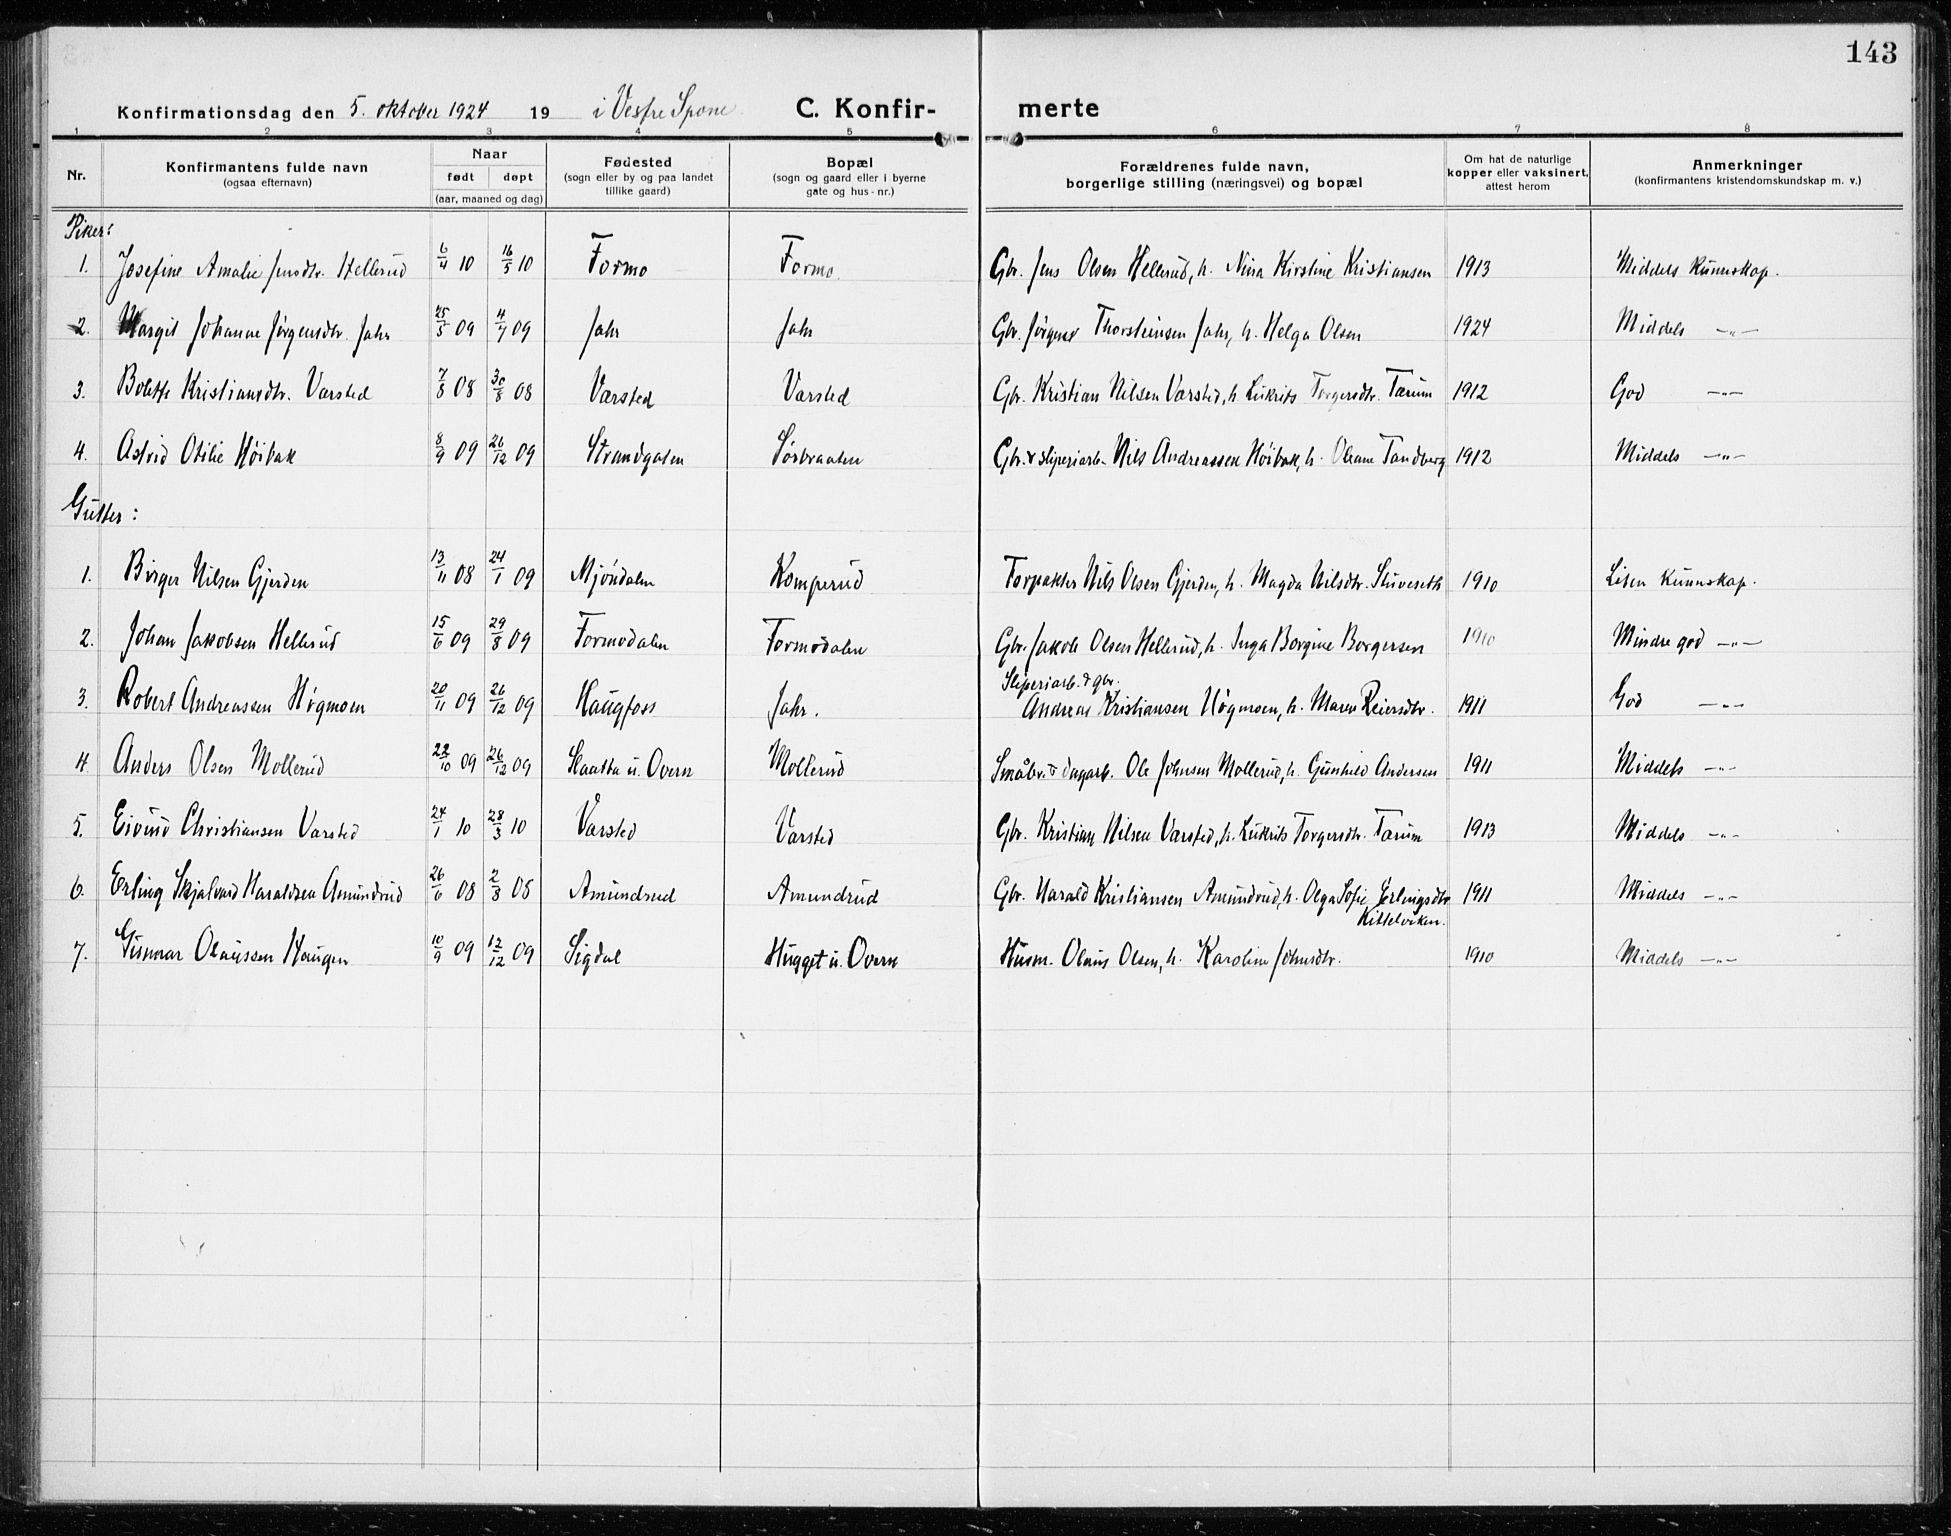 143
Konfirmationsdag den 5. oktober 1924 19 i Vestre Spone. C. Konfir- merte
1 2 3 4 5 6 7 8
Nr. Konfirmantens fulde navn (ogsaa efternavn) Naar født døpt (aar, maaned og dag) Fødested (sogn eller by og paa landet tillike gaard) Bopæl (sogn og gaard eller i byerne gate og hus-nr.) Forældrenes fulde navn, borgerlige stilling (næringsvei) og bopæl Om hat de naturlige kopper eller vaksinert, attest herom Anmerkninger (konfirmantens kristendomskundskap m. v.)
Piker:
1. Josefine Amalie Jensdtr. Hellerud 6/4 10 16/5 10 Formo Formo. Gbr. Jens Olsen Hellerud, h. Nina Kirstine Kristiansen 1913 Middels Kunnskap.
2. Margit Johanne Jørgensdtr. Jahr 25/5 09 4/7 09 Jahr Jahr Gbr. Jørgen Thorsteinsen Jahr, h. Helga Olsen 1924 Middels -"-
3. Bolette Kristiansdtr. Varsted 7/8 08 30/8 08 Varsted Varsted Gbr. Kristian Nilsen Varsted, h. Lukrits Torgersdtr. Tarum 1912 God -"-
4. Astrid Otilie Høibak 8/9 09 26/12 09 Strandgaten Sørbraaten Gbr. & sliperiarb. Nils Andreassen Høibak, h. Oleane Tandberg 1912 Middels -"-
Gutter:
1. Birger Nilsen Gjerden 13/11 08 24/1 09 Mjøndalen Komperud Forpakter Nils Olsen Gjerden, h. Magda Nilsdtr. Stuveseth 1910 Liten Kunnskap.
2. Johan Jakobsen Hellerud 15/6 09 29/8 09 Formodalen Formodalen Gbr. Jakob Olsen Hellerud, h. Inga Borgine Borgersen 1910 Mindre god -"-
3. Robert Andreassen Høgmoen 20/11 09 26/12 09 Haugfoss Jahr. Sliperiarb. & gbr. Andreas Kristiansen Høgmoen, h. Maren Reiersdtr. 1911 God -"-
4. Anders Olsen Mollerud 22/10 09 26/12 09 Slaatta u. Overn Mollerud Småbr. & dagarb. Ole Johnsen Mollerud, h. Gunhild Andersen 1911 Middels -"-
5. Eivind Christiansen Varsted 24/1 10 28/3 10 Varsted Varsted Gbr. Kristian Nilsen Varsted, h. Lukrits Torgersdtr. Tarum 1913 Middels -"-
6. Erling Skjalvard Haraldsen Amundrud 26/6 08 2/8 08 Amundrud Amundrud Gbr. Harald Kristiansen Amundrud, h. Olga Sofie Erlingsdtr. Kittelviken. 1911 Middels -"-
7. Gunnar Olaussen Haugen 10/9 09 12/12 09 Sigdal Hugget u. Overn Husm. Olaus Olsen, h. Karoline Johnsdtr. 1910 Middels -"-